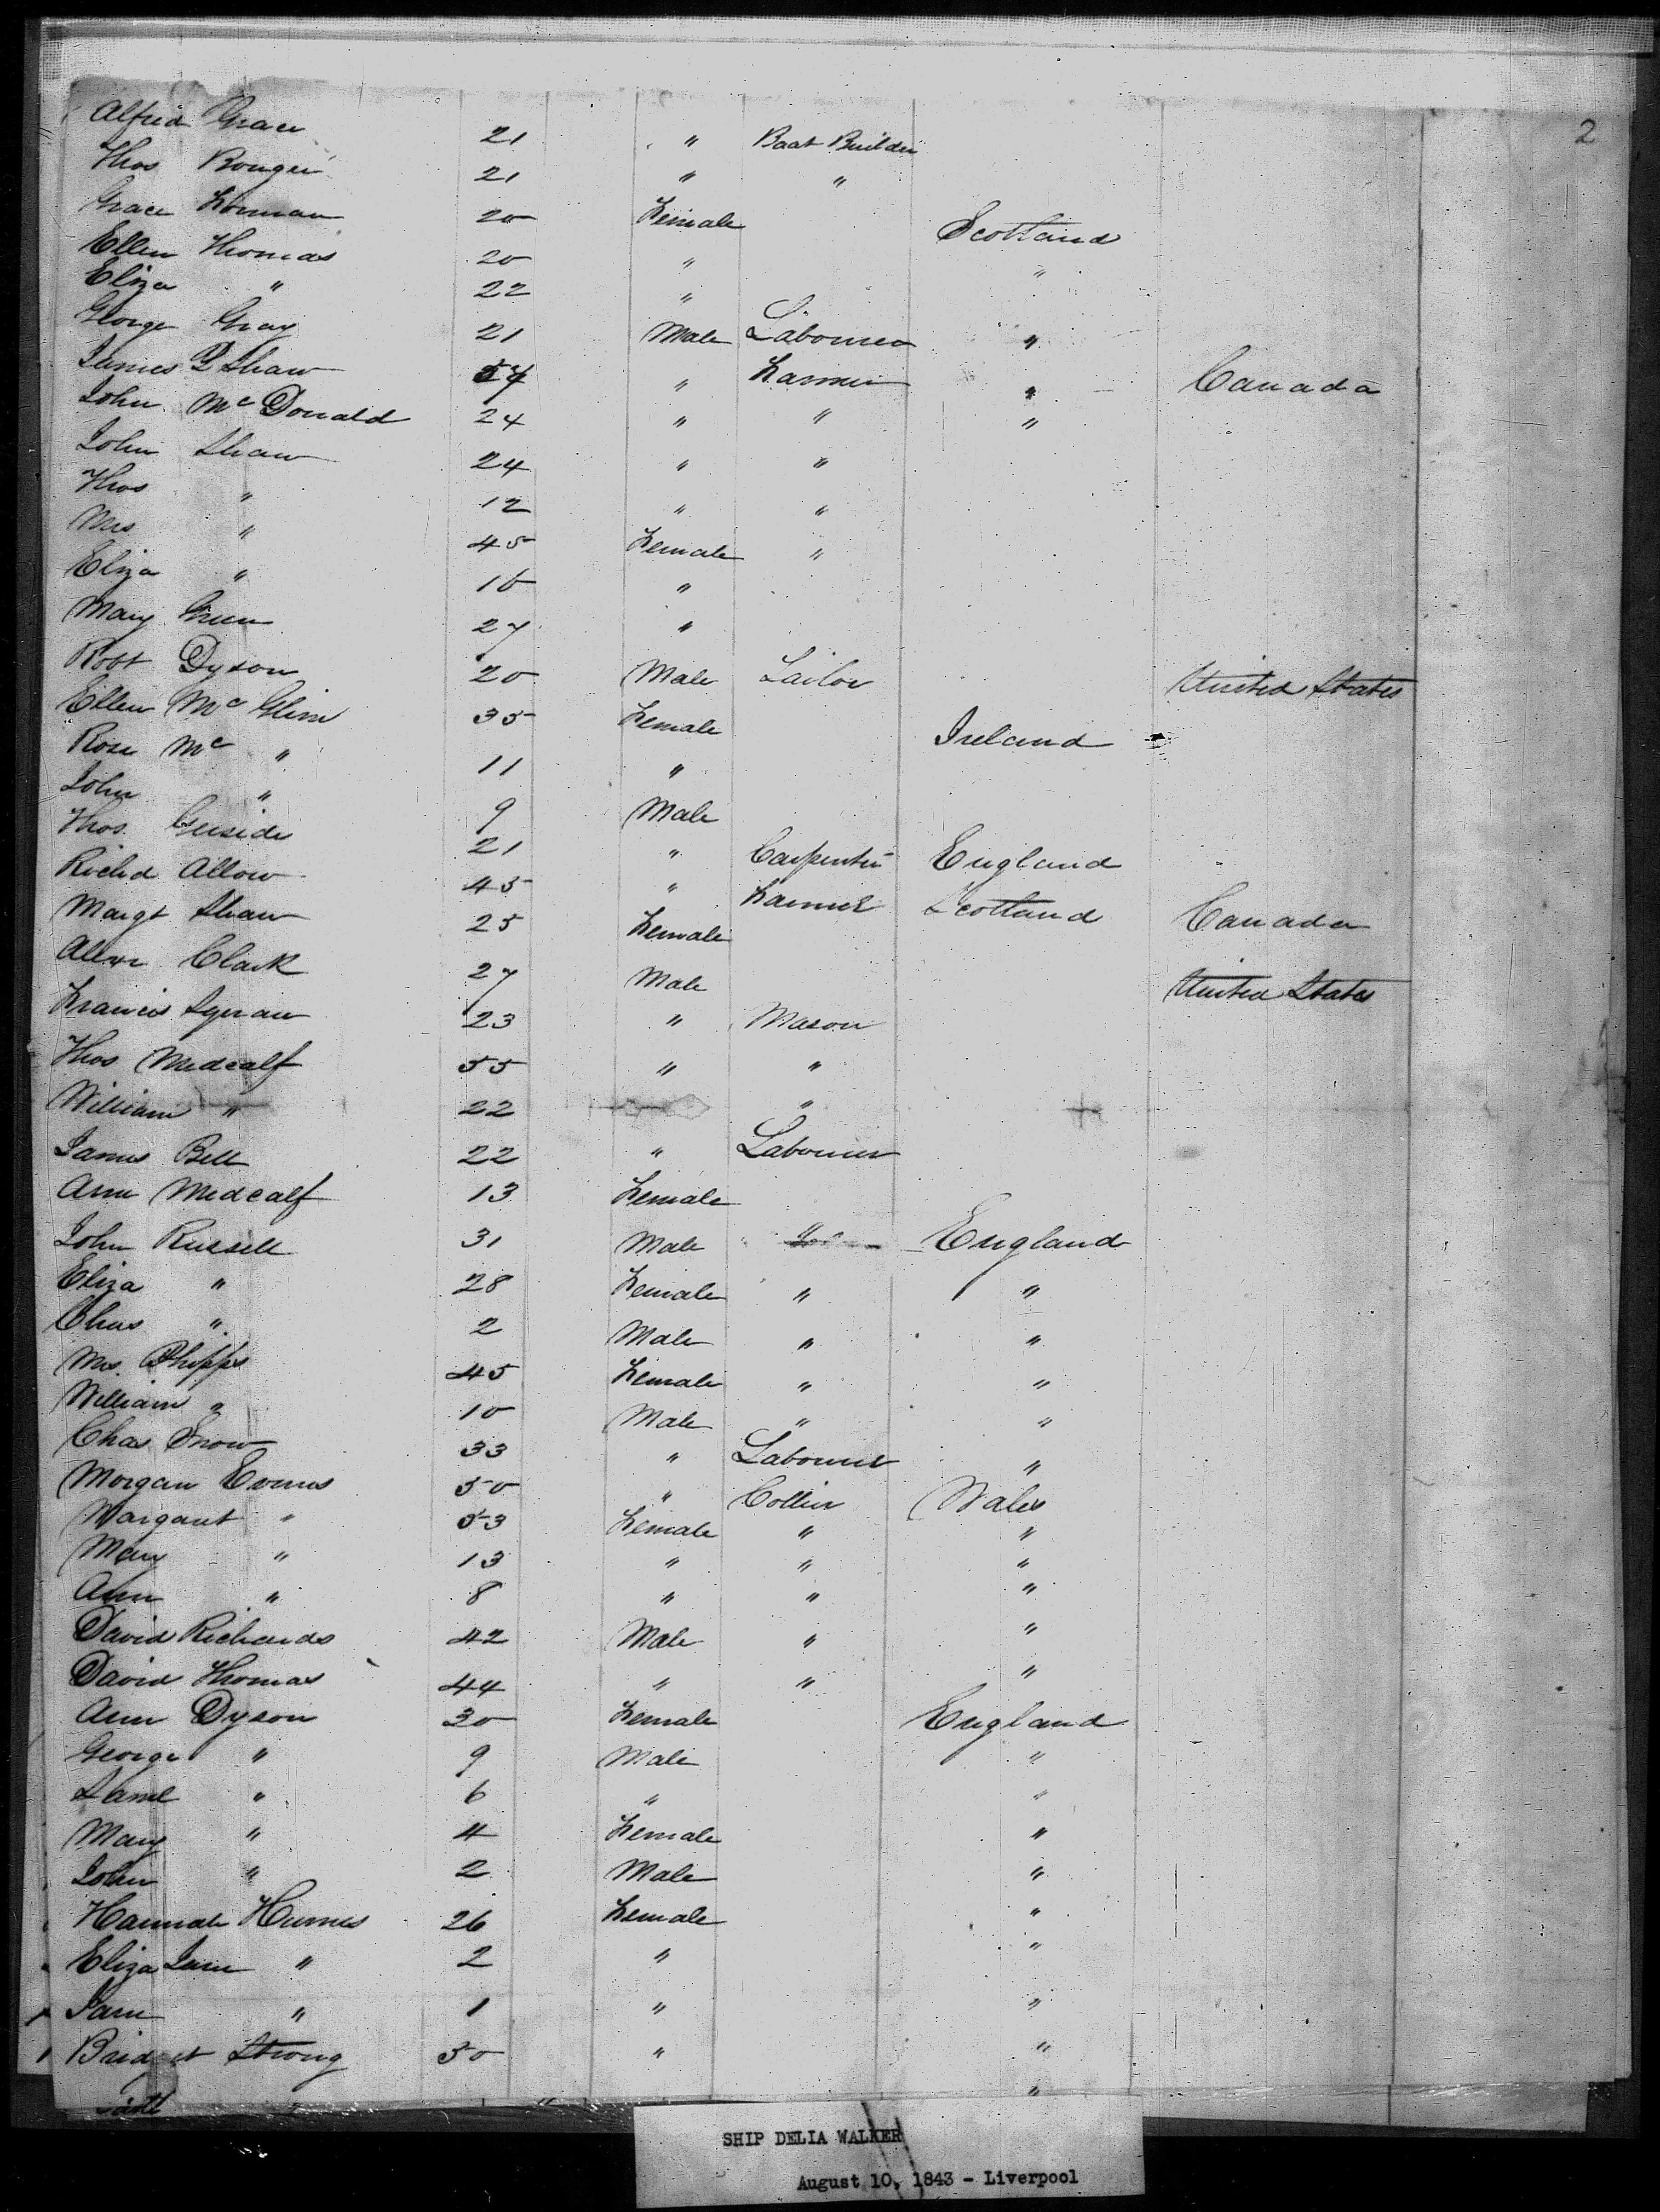 2
Alfred Grace 21 " Boat Builder
Thos 21 " "
Grace 20 Female Scotland
Ellen Thomas 20 " "
Eliza " 22 "
George Gray 21 Male Labourer "
James P Shaw 57 " Farmer " Canada
John McDonald 24 " " "
John Shaw 24 " "
Thos " 12 " "
Mrs " 45 Female "
Eliza " 16 "
Mary Green 27 "
Robt Dyson 20 Male Tailor United States
Ellen Mc Glinn 35 Female Ireland
Rose Mc " 11 "
John " 9 Male
Thos 21 " Carpenter England
Richd Allow 45 " Farmer Scotland Canada
Margt Shaw 25 Female
Alexr Clark 27 Male United States
Francis 23 " Mason
Thos Medcalf 55 " "
William " 22 "
James Bell 22 " Labourer
Ann Medcalf 13 Female
John Russell 31 Male " England
Eliza " 28 Female " "
Chas " 2 Male " "
Mrs. Phipps 45 Female " "
William " 10 Male " "
Chas Snow 33 " Labourer "
Morgan Evans 50 " Collier Wales
Margaret " 53 Female " "
Mary " 13 " " "
Ann " 8 " " "
David Richards 42 Male " "
David Thomas 44 " " "
Ann Dyson 30 Female England
George " 9 Male "
Saml " 6 " "
Mary " 4 Female "
John " 2 Male "
Hannah Humes 26 Female "
Eliza Jane " 2 " "
Jane " 1 " "
Bridget Strong 50 " "
"
SHIP DELIA WALKER
August 10, 1843 - Liverpool